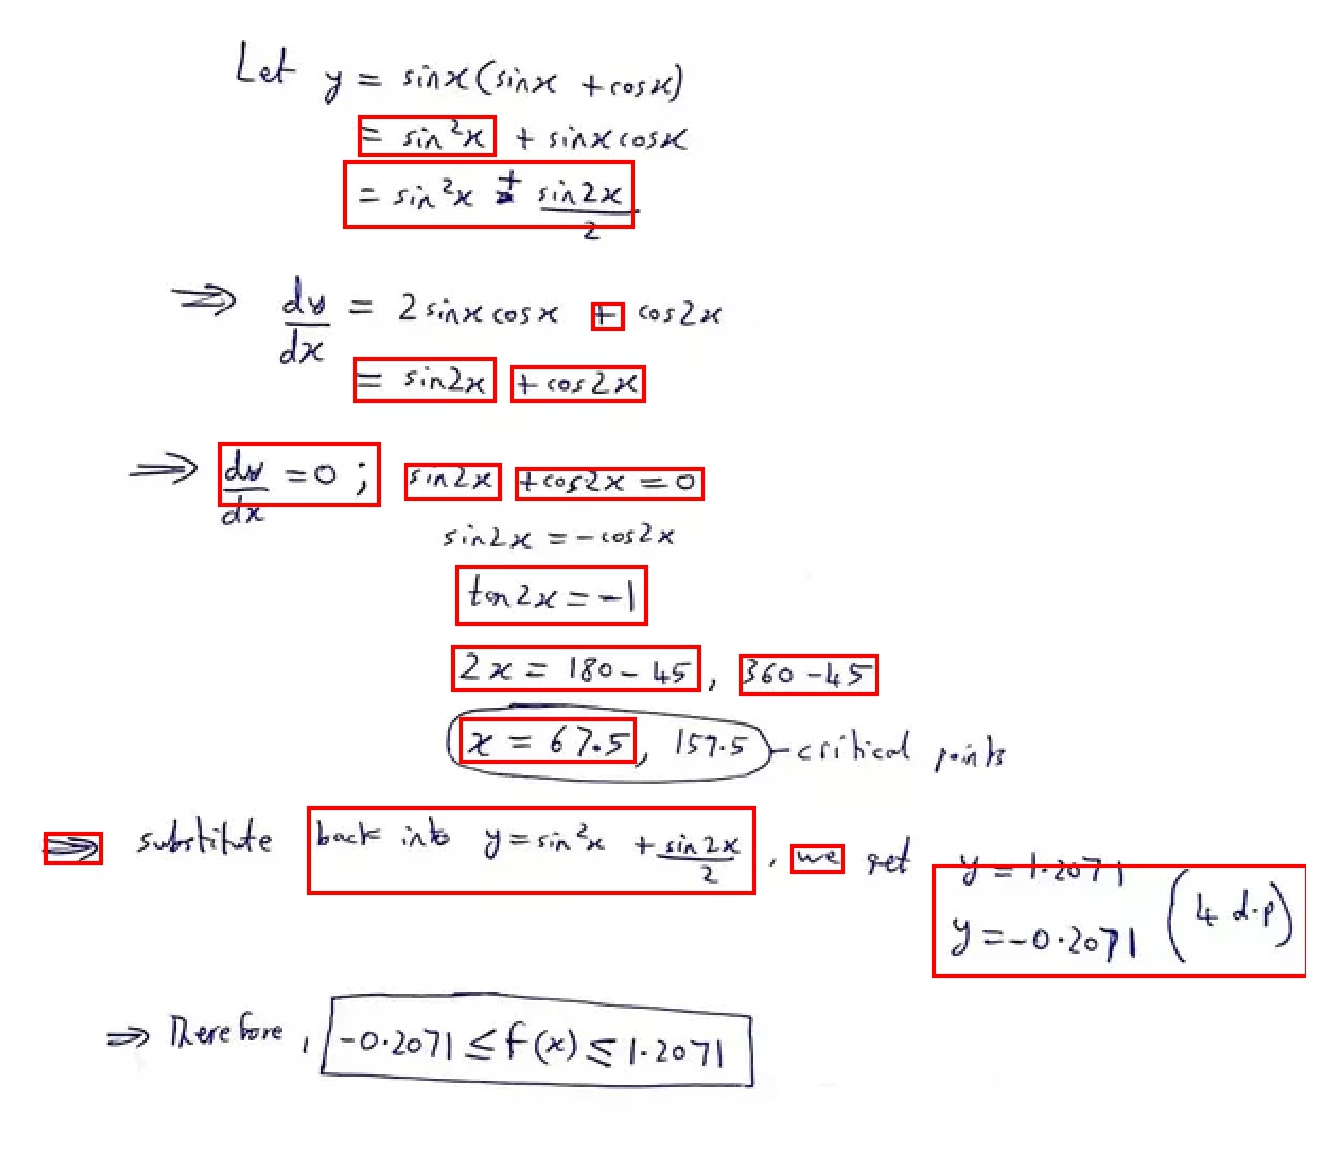 Let y = sinx(sinx + cosx)
= sin²x + sinxcosx
= sin²x + sin2x/2
⇒ dy/dx = 2sinxcosx + cos2x
= sin2x + cos2x
⇒ dy/dx = 0 ; sin2x + cos2x = 0
sin2x = -cos2x
tan2x = -1
2x = 180-45, 360-45
x = 67.5, 157.5 - critical points
⇒ substitute back into y = sin²x + sin2x/2, we get y = 1.2071
y = -0.2071 (4 d.p)
⇒ Therefore, -0.2071 ≤ f(x) ≤ 1.2071